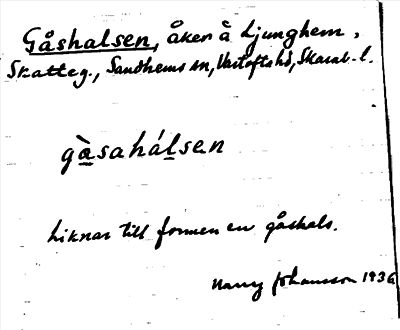 Gåshalsen, åker å Ljunghem,
Skatteg., Sandhems sn, Vartofts hd, Skarab. l.
gàsahálsen
Liknar till formen en gåshals.
Harry Johansson 1936